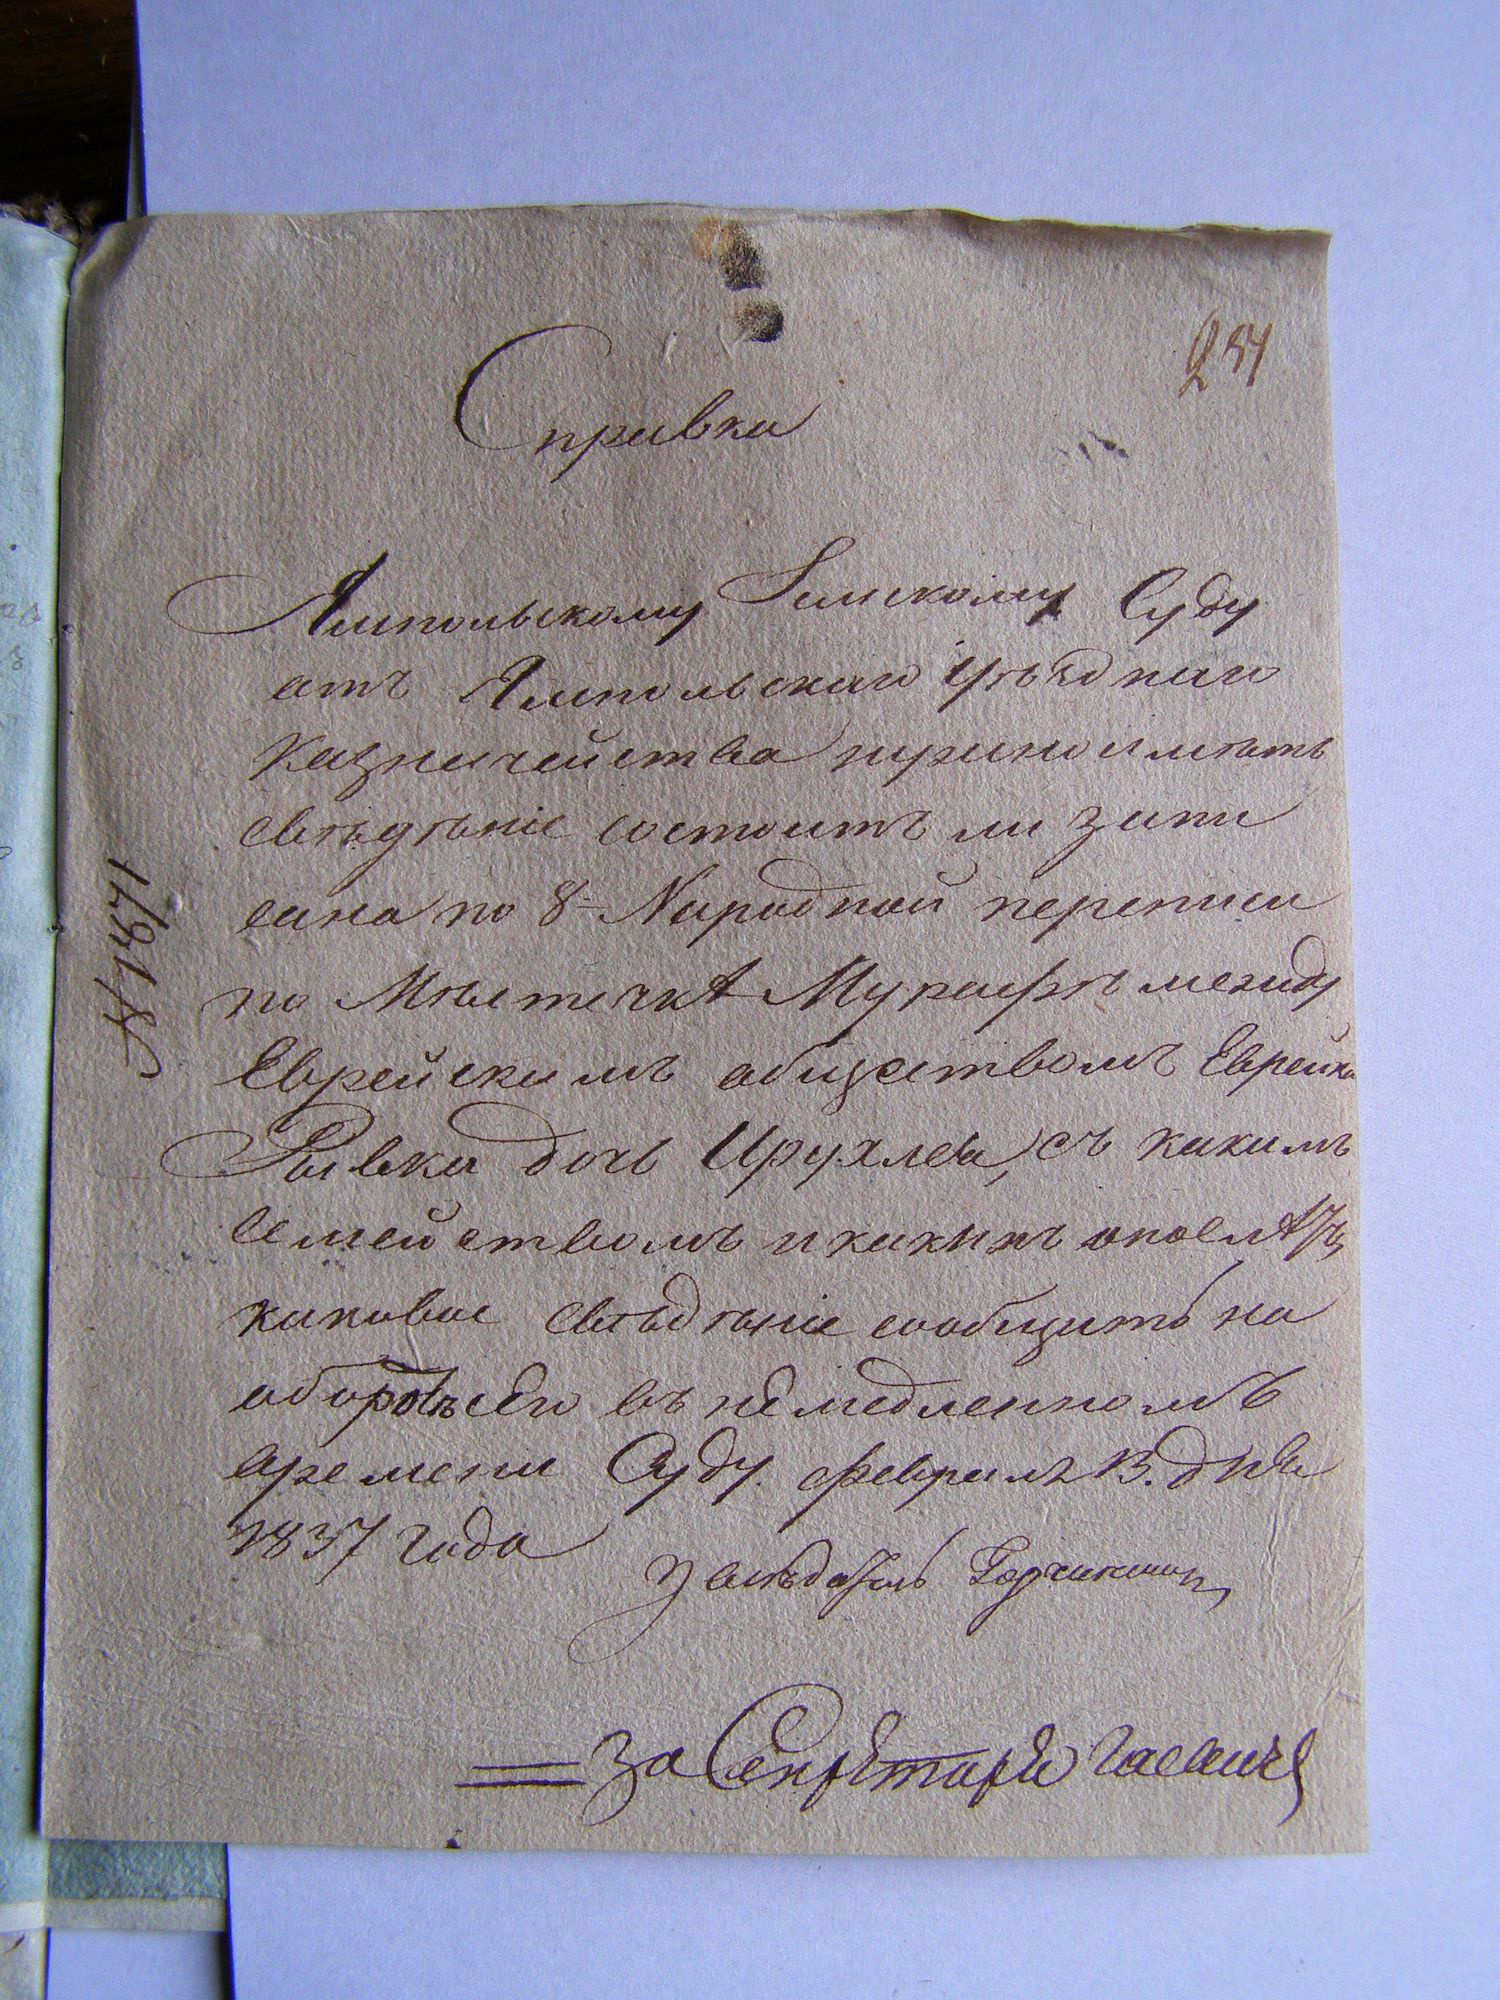 254
Справка
Ямпольскому Земскому Суду
отъ Ямпольскаго Уѣзднаго
Казначейства нужно имѣть
свѣдѣніе состоитъ ли запи
сана по 8й Народной переписи
по Мѣстечкѣ Мурафѣ между
Еврейскимъ обществомъ Еврейка
Рывка дочь Срухлева, съ какимъ
семействомъ и какихъ
каковое свѣдѣніе сообщить на
оборотѣ сего въ немедленномъ
времени Суду. февраля 13. дня
1837 года
Засѣдатель
За Секретаря